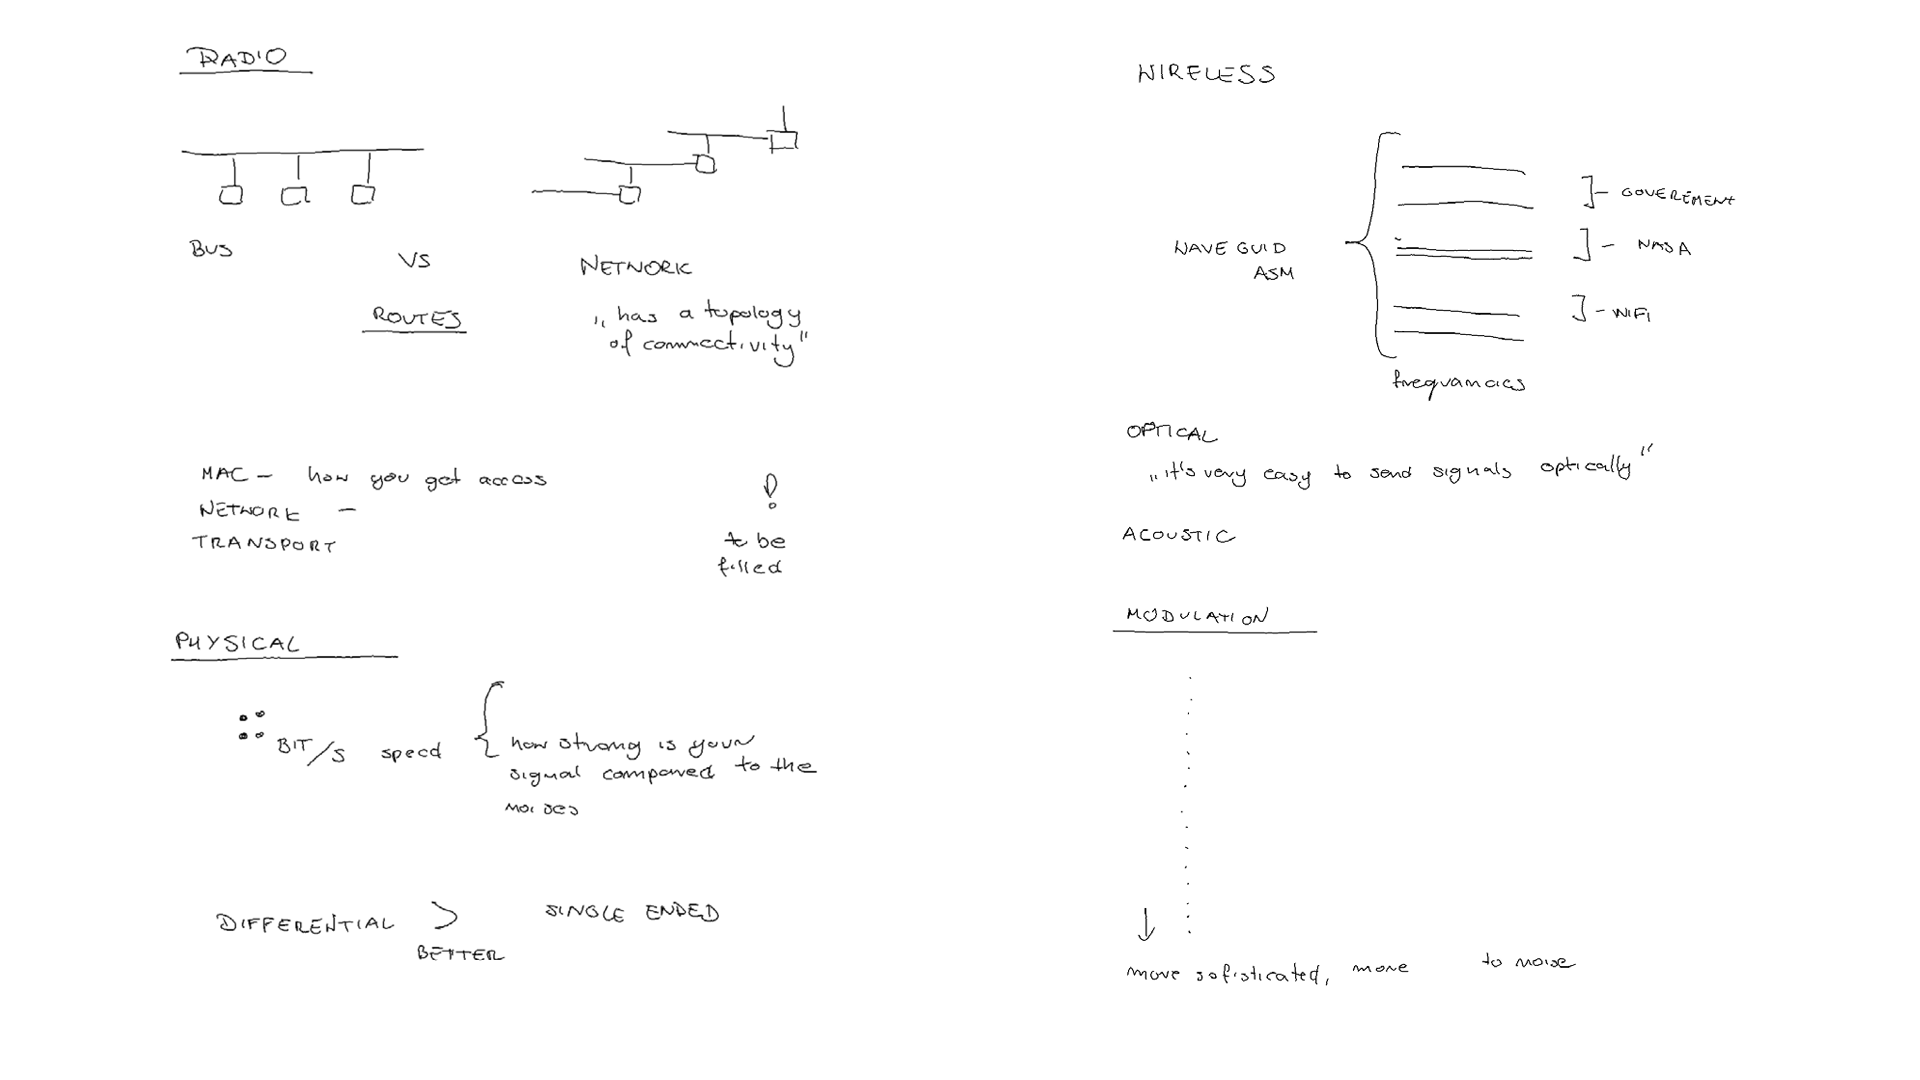 RADIO
BUS
VS
NETWORK
ROUTES
„has a topology
of connectivity"
MAC - how you get access
NETWORK -
TRANSPORT
!
to be
filled
PHYSICAL
BIT/S speed
how strong is your
signal compared to the
noises
DIFFERENTIAL > SINGLE ENDED
BETTER
WIRELESS
WAVE GUID
ASM
] - GOVEREMENT
] - NASA
] - WIFI
frequancies
OPTICAL
„it's very easy to send signals optically"
ACOUSTIC
MODULATION
more sofisticated, more to noise